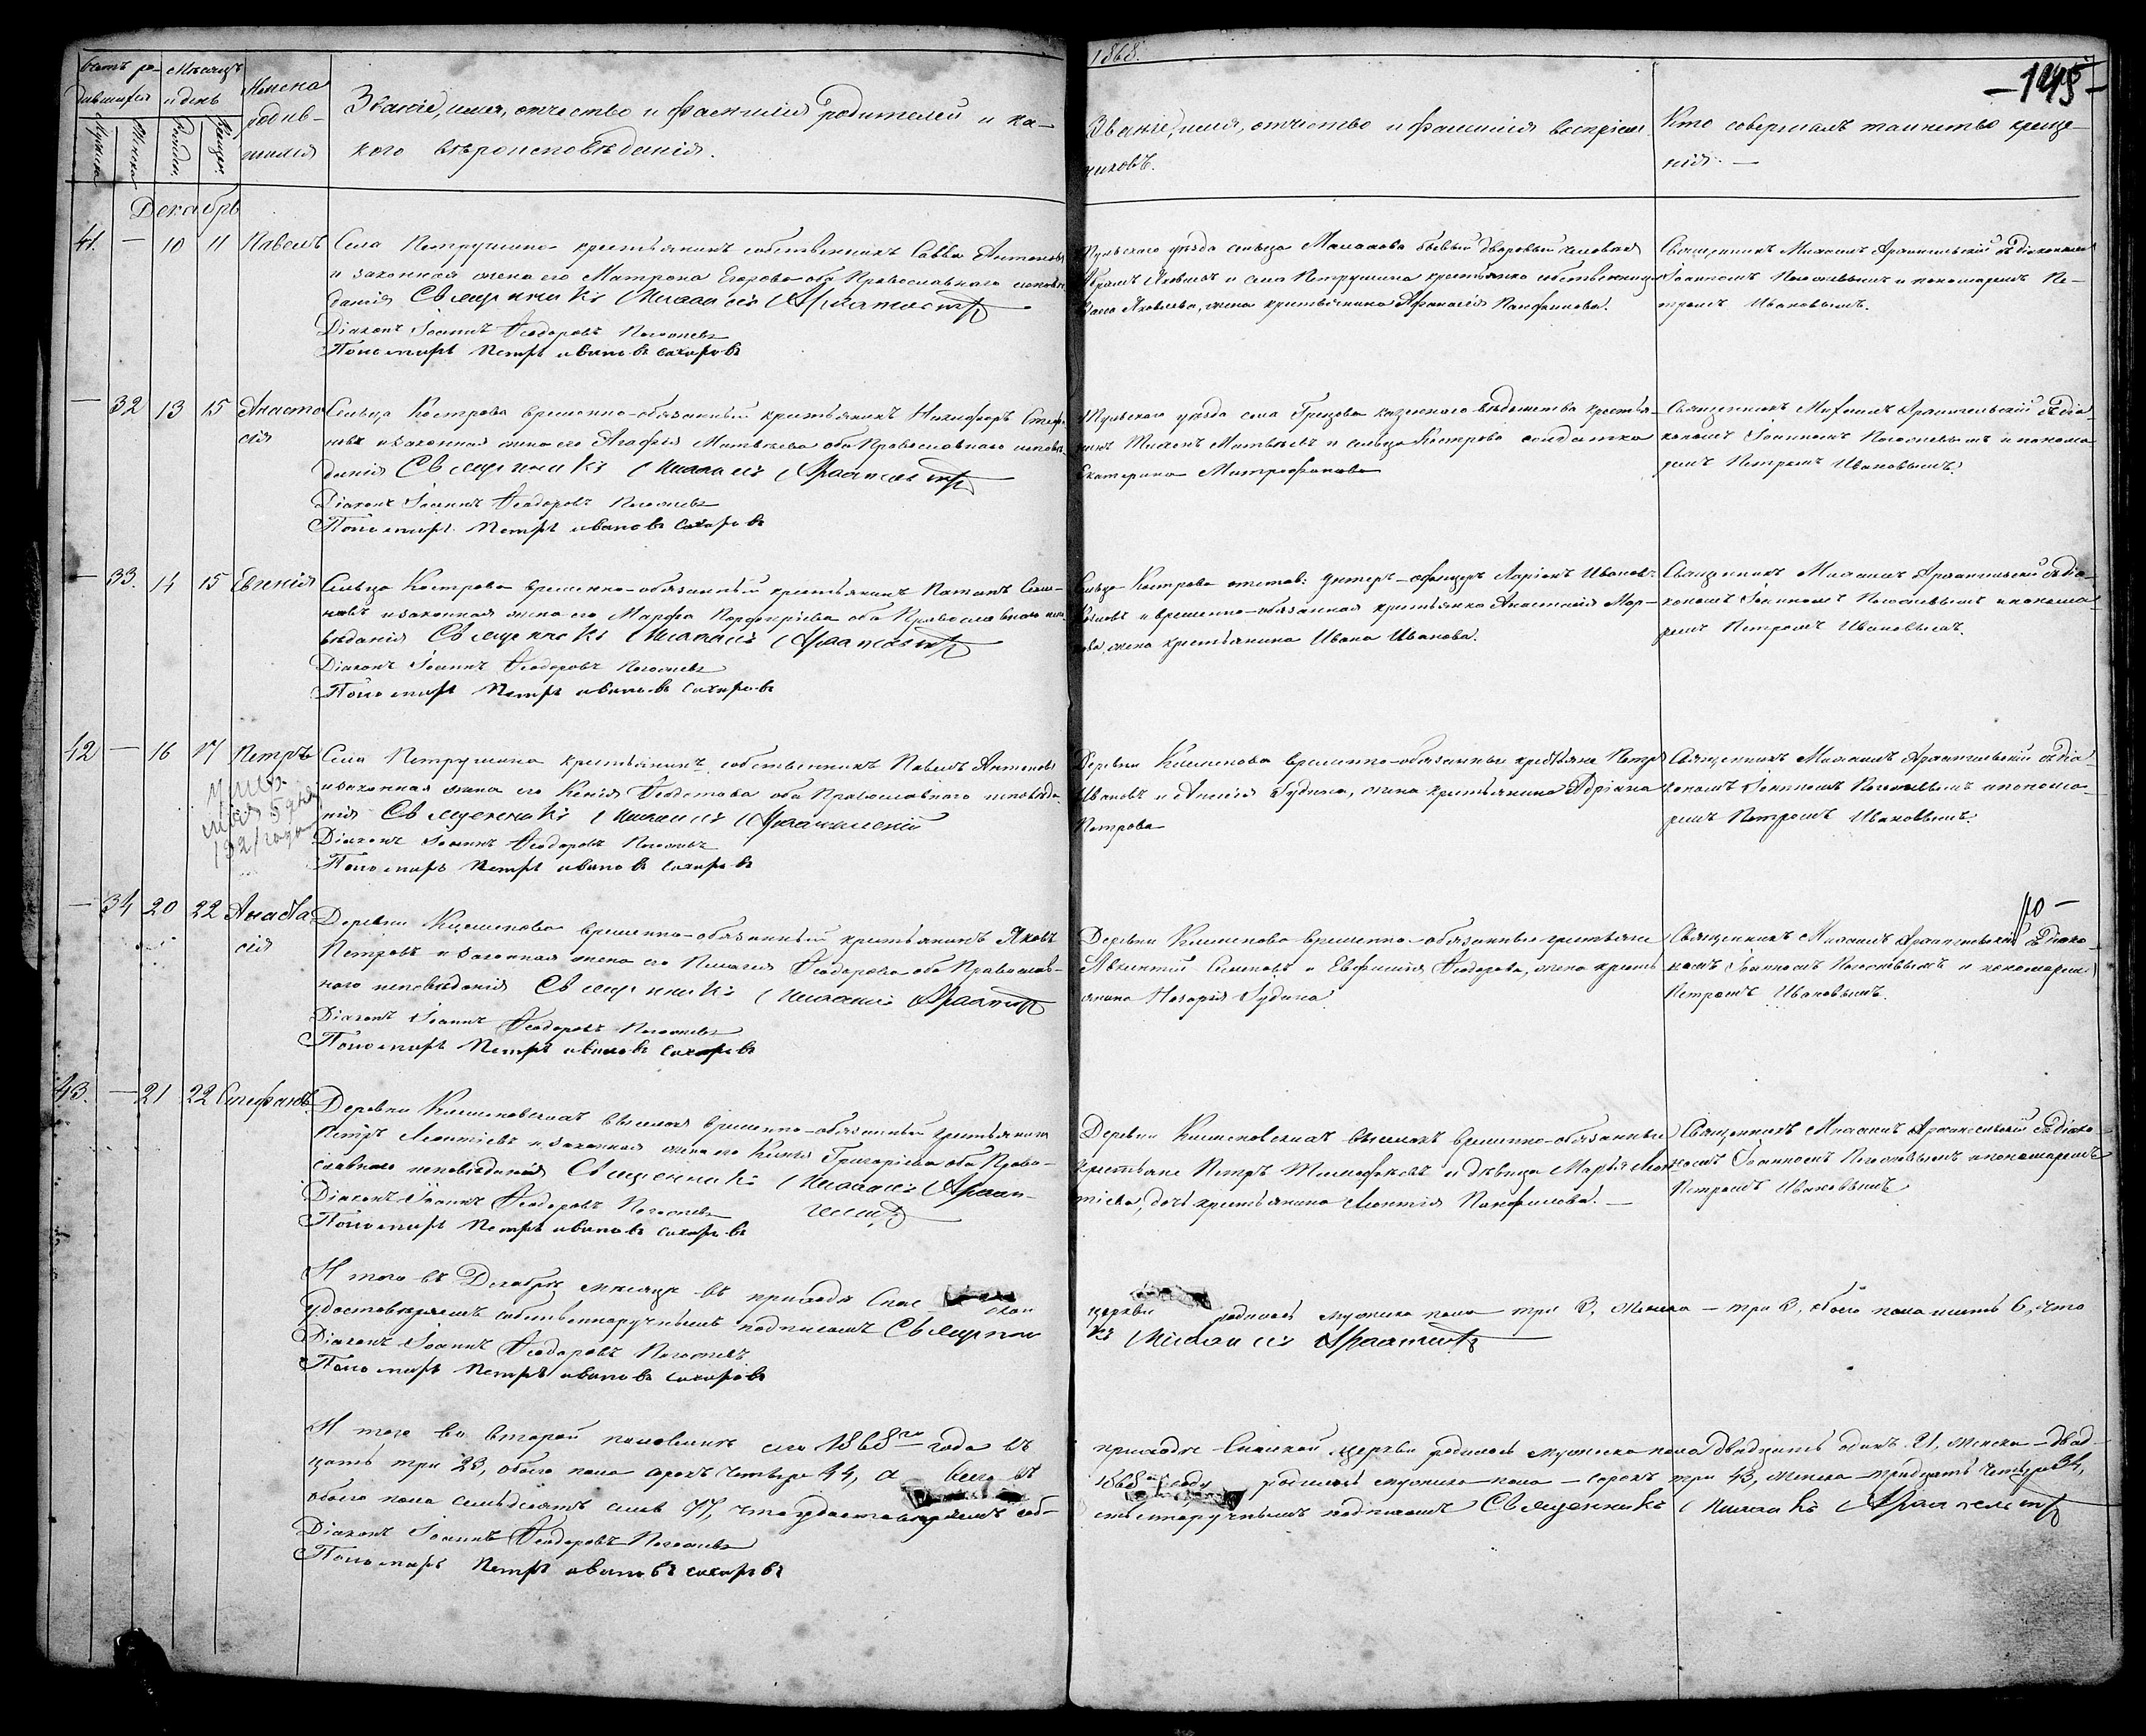 1868.
145
Счетъ ро-
дившихся
Мужеска
Женска
Мѣсяцъ
и день
Рожден.
Крещен.
Имена
родив-
шихся
Званіе, имя, отчество и фамилія родителей и ка-
кого вѣроисповѣданія.
Званіе, имя, отчество и фамилія воспріем-
никовъ.
Кто совершалъ таинство креще-
нія. —
Декабрь
41. — 10 11 Павелъ
Села Петрушина крестьянинъ собственникъ Савва Антоновъ
и законная жена его Матрона Егорова оба Православнаго исповѣ-
данія Священникъ Михаилъ
Діаконъ Іоаннъ Ѳеодоровъ
Пономарь Петръ Ивановъ Сахаровъ
Тульскаго уѣзда сельца бывый дворовый человѣкъ
и села Петрушина крестьянка собственница
Яковлева, жена крестьянина Аѳанасія Панфилова.
Священникъ Михаилъ Архангельскій съ Діакономъ
Іоанномъ и пономаремъ Пе-
тромъ Ивановымъ.
— 32 13 15 Анаста
сія
Сельца Кострова временно-обязанный крестьянинъ Никифоръ
и законная жена его Агафія Матвѣева оба Православнаго исповѣ-
данія Священникъ Михаилъ
Діаконъ Іоаннъ Ѳеодоровъ
Пономарь Петръ Ивановъ Сахаровъ
Тульскаго уѣзда села Грецова казеннаго вѣдомства крестья-
нинъ Матвѣевъ и сельца Кострова солдатка
Екатерина Митрофанова
Священникъ Михаилъ Архангельскій съ Діа-
кономъ Іоанномъ и понома-
ремъ Петромъ Ивановымъ.
— 33. 14 15 Евгенія
Сельца Кострова временно-обязанный крестьянинъ Потапъ
и законная жена его Марфа Порфирьева оба Православнаго испо-
вѣданія Священникъ Михаилъ
Діаконъ Іоаннъ Ѳеодоровъ
Пономарь Петръ Ивановъ Сахаровъ
Сельца Кострова отстав: унтеръ-офицеръ Ларіонъ Ивановъ
и временно-обязанная крестьянка Анастасія
жена крестьянина Ивана Иванова.
Священникъ Михаилъ Архангельскій съ Діа-
кономъ Іоанномъ и понома-
ремъ Петромъ Ивановымъ.
42 — 16 17 Петръ
мая 5 дня
1921 года
Села Петрушина крестьянинъ собственникъ Павелъ Антоновъ
и законная жена его Ксенія Ѳедотова оба Православнаго исповѣда-
нія Священникъ Михаилъ Архангельскій
Діаконъ Іоаннъ Ѳеодоровъ
Пономарь Петръ Ивановъ Сахаровъ
Деревни Клешнова временно-обязанные крестьяне Петръ
Ивановъ и жена крестьянина Адріана
Петрова
Священникъ Михаилъ Архангельскій съ Діа-
кономъ Іоанномъ и понома-
ремъ Петромъ Ивановымъ.
— 34 20 22 Анаста
сія
Деревни временно-обязанный крестьянинъ Яковъ
Петровъ и законная жена его Пелагія Ѳеодорова оба Православ-
наго исповѣданія Священникъ Михаилъ
Діаконъ Іоаннъ Ѳеодоровъ
Пономарь Петръ Ивановъ Сахаровъ
Деревни временно-обязанные крестьяне
Авксентій Семеновъ и Евфимія Ѳеодорова, жена кресть-
янина Назарія
Священникъ Михаилъ Архангельскій съ Діако-
номъ Іоанномъ и пономаремъ
Петромъ Ивановымъ.
43. — 21 22 Стефанъ
Деревни временно-обязанный крестьянинъ
Петръ Леонтіевъ и законная жена его Григоріева оба Право-
славнаго исповѣданія Священникъ Михаилъ Архан-
Діаконъ Іоаннъ Ѳеодоровъ
Пономарь Петръ Ивановъ Сахаровъ
Деревни временно-обязанные
крестьяне Петръ Тимофѣевъ и дѣвица Марья Леон-
тіева, дочь крестьянина Леонтія Панфилова. —
Священникъ Михаилъ Архангельскій съ Діако-
номъ Іоанномъ и пономаремъ
Петромъ Ивановымъ
И того въ Декабрѣ мѣсяцѣ въ приходѣ Спас-ской
церкви родилось мужеска пола — три 3, женска — три 3, обоего пола шесть 6, что
удостовѣряемъ собственноручнымъ подписомъ Священни
къ Михаилъ
Діаконъ Іоаннъ Ѳеодоровъ
Пономарь Петръ Ивановъ Сахаровъ
И того во второй половинѣ сего 1868го года въ
приходѣ Спасской церкви родилось мужеска пола двадцать одинъ 21, женска — двад-
цать три 23, обоего пола сорокъ четыре 44, а всего въ
1868 году родилось мужеска пола — сорокъ три 43, женска — тридцать четыре 34,
обоего пола семьдесятъ семь 77, что удостовѣряемъ соб-
ственноручнымъ подписомъ Священникъ Михаилъ
Діаконъ Іоаннъ Ѳеодоровъ
Пономарь Петръ Ивановъ Сахаровъ